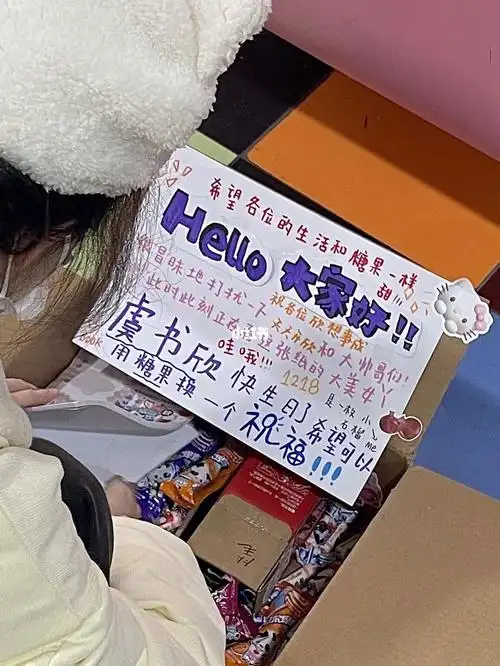 希望各位的生活和糖果一样
甜!!!
Hello 大家好!!
冒昧地打扰一下
祝各位欣想事成
和大帅哥们!
此时此刻正在 这张纸的大美女丫
哇哦!!!
1218
是一枚小石榴
me
虞书欣快生日了 希望可以
用糖果换一个祝福!!!
小红书